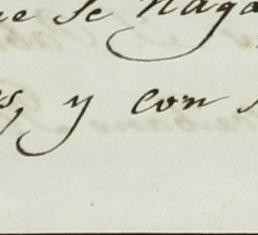 ue se haga
es, y con s